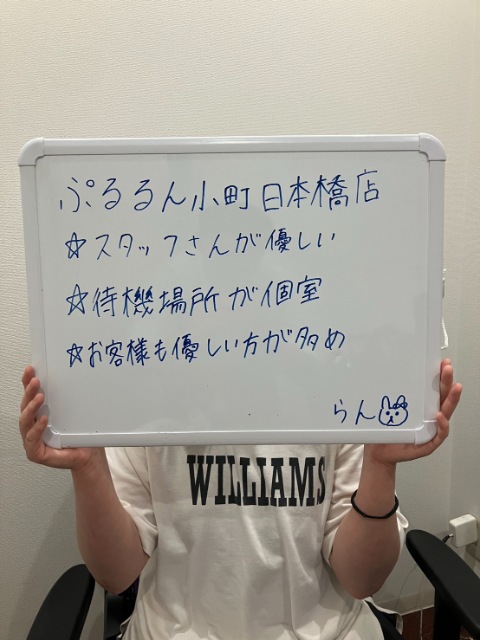 ぷるるん小町日本橋店
☆スタッフさんが優しい
☆待機場所が個室
☆お客様も優しい方が多め
らん
WILLIAMS